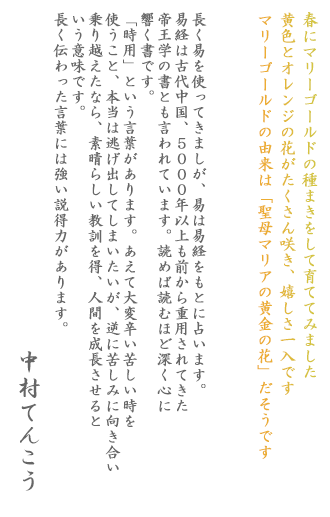 春にマリーゴールドの種まきをして育ててみました
黄色とオレンジの花がたくさん咲き、嬉しさ一入です
マリーゴールドの由来は「聖母マリアの黄金の花」だそうです
長く易を使ってきましが、易は易経をもとに占います。
易経は古代中国、５０００年以上も前から重用されてきた
帝王学の書とも言われています。読めば読むほど深く心に
響く書です。
「時用」という言葉があります。あえて大変辛い苦しい時を
使うこと、本当は逃げ出してしまいたいが、逆に苦しみに向き合い
乗り越えたなら、素晴らしい教訓を得、人間を成長させると
いう意味です。
長く伝わった言葉には強い説得力があります。
中村てんこう